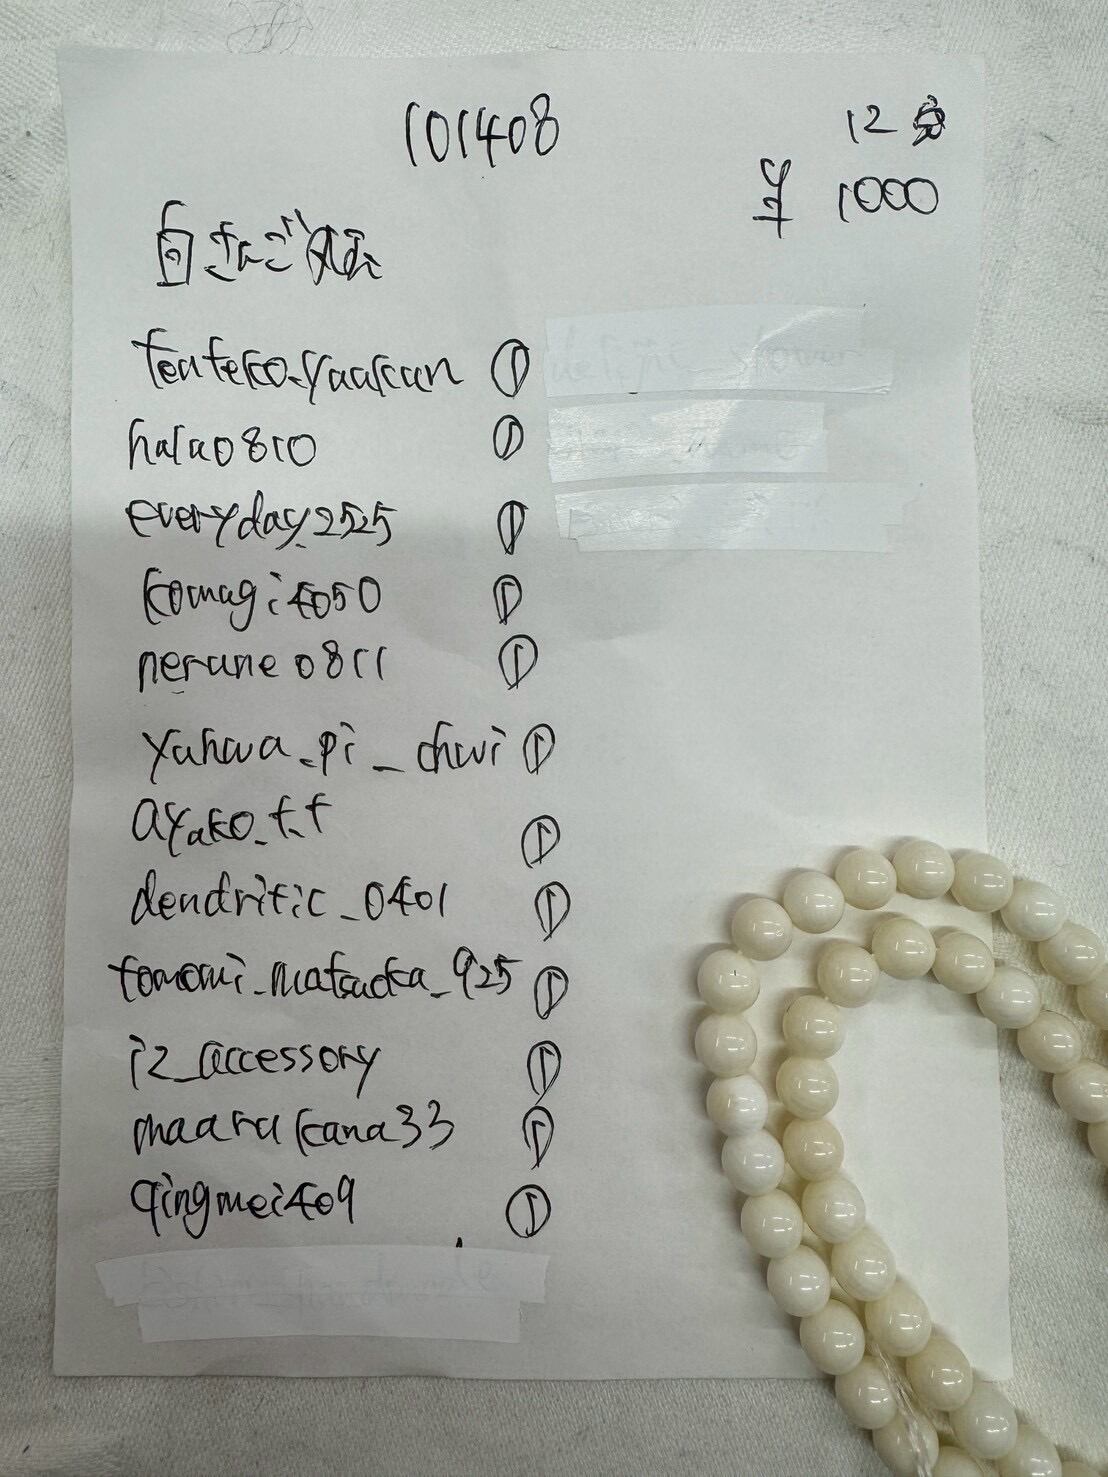 101408
12
¥ 1000
白さんご
tenteko-yaakan ①
hala0810 ①
everyday.2525 ①
komagi4050 ①
nerune0811 ①
yuhwa_pi_chwi ①
ayako.t.t ①
dendritic_0401 ①
tomomi_matsuoka_925 ①
iz_accessory ①
maarukana33 ①
qingmei409 ①